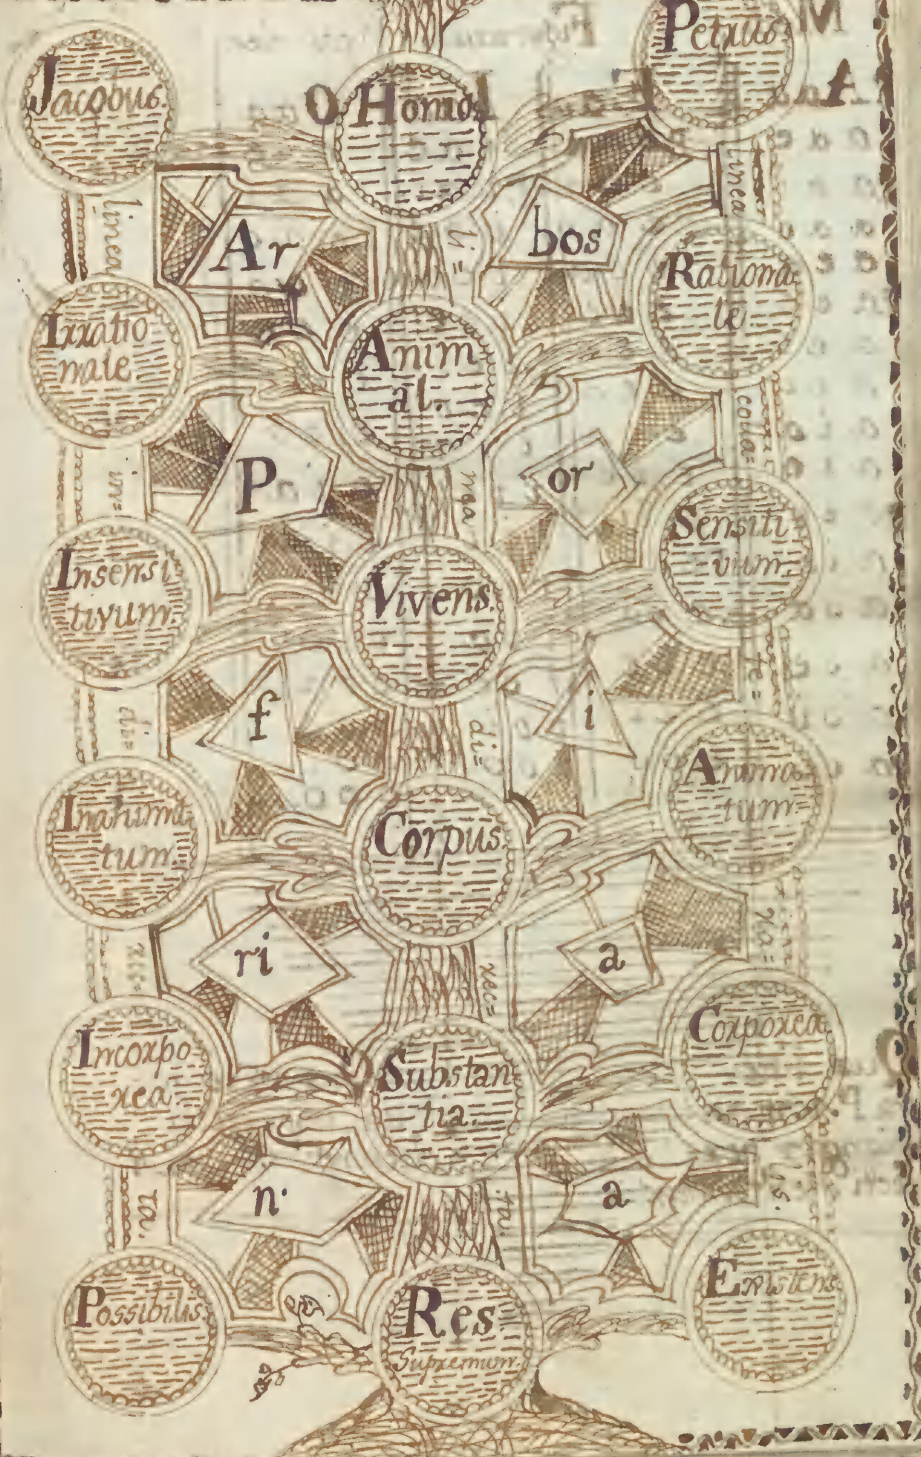 Jacobus.
Homo
Petrus.
linea
li=
linea
Ar
bos
Irratio
nale
Animal
al.
Rationa=
le
in=
P
ma
or
coña=
Insensi
tivum.
Vivens.
Sensiti
vum.
di=
f
di=
i
te=
Inanima
tum.
Corpus.
Anima
tum=
rec=
ri
rec=
a
Incorpo
rea.
Substan
tia.
Corporea
ta.
n.
ta.
a
lis.
Possibilis.
Res
Supremum.
Existens